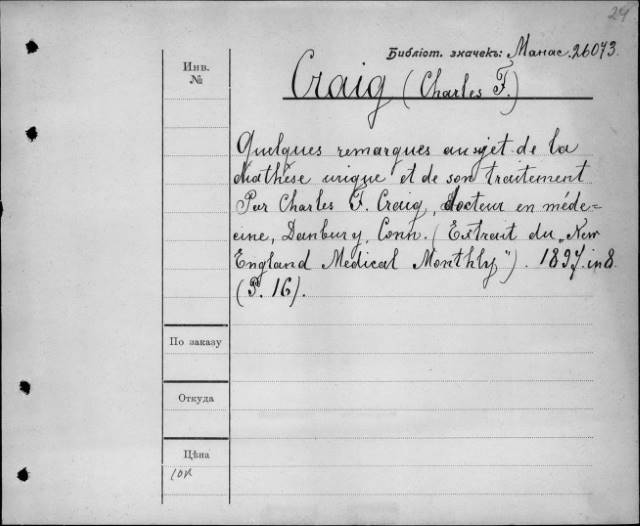 24
Библіот. значекъ: Манас. 26073.
Инв.
№
Craig (Charles F.)
Quelques remarques au sujet de la
diathèse urique et de son traitement
Par Charles F. Craig, docteur en méde-
cine, Danbury, Conn. (Extrait du „New
England Medical Monthly"). 1897. in 8.
(P. 16).
По заказу
Откуда
Цѣна
10к